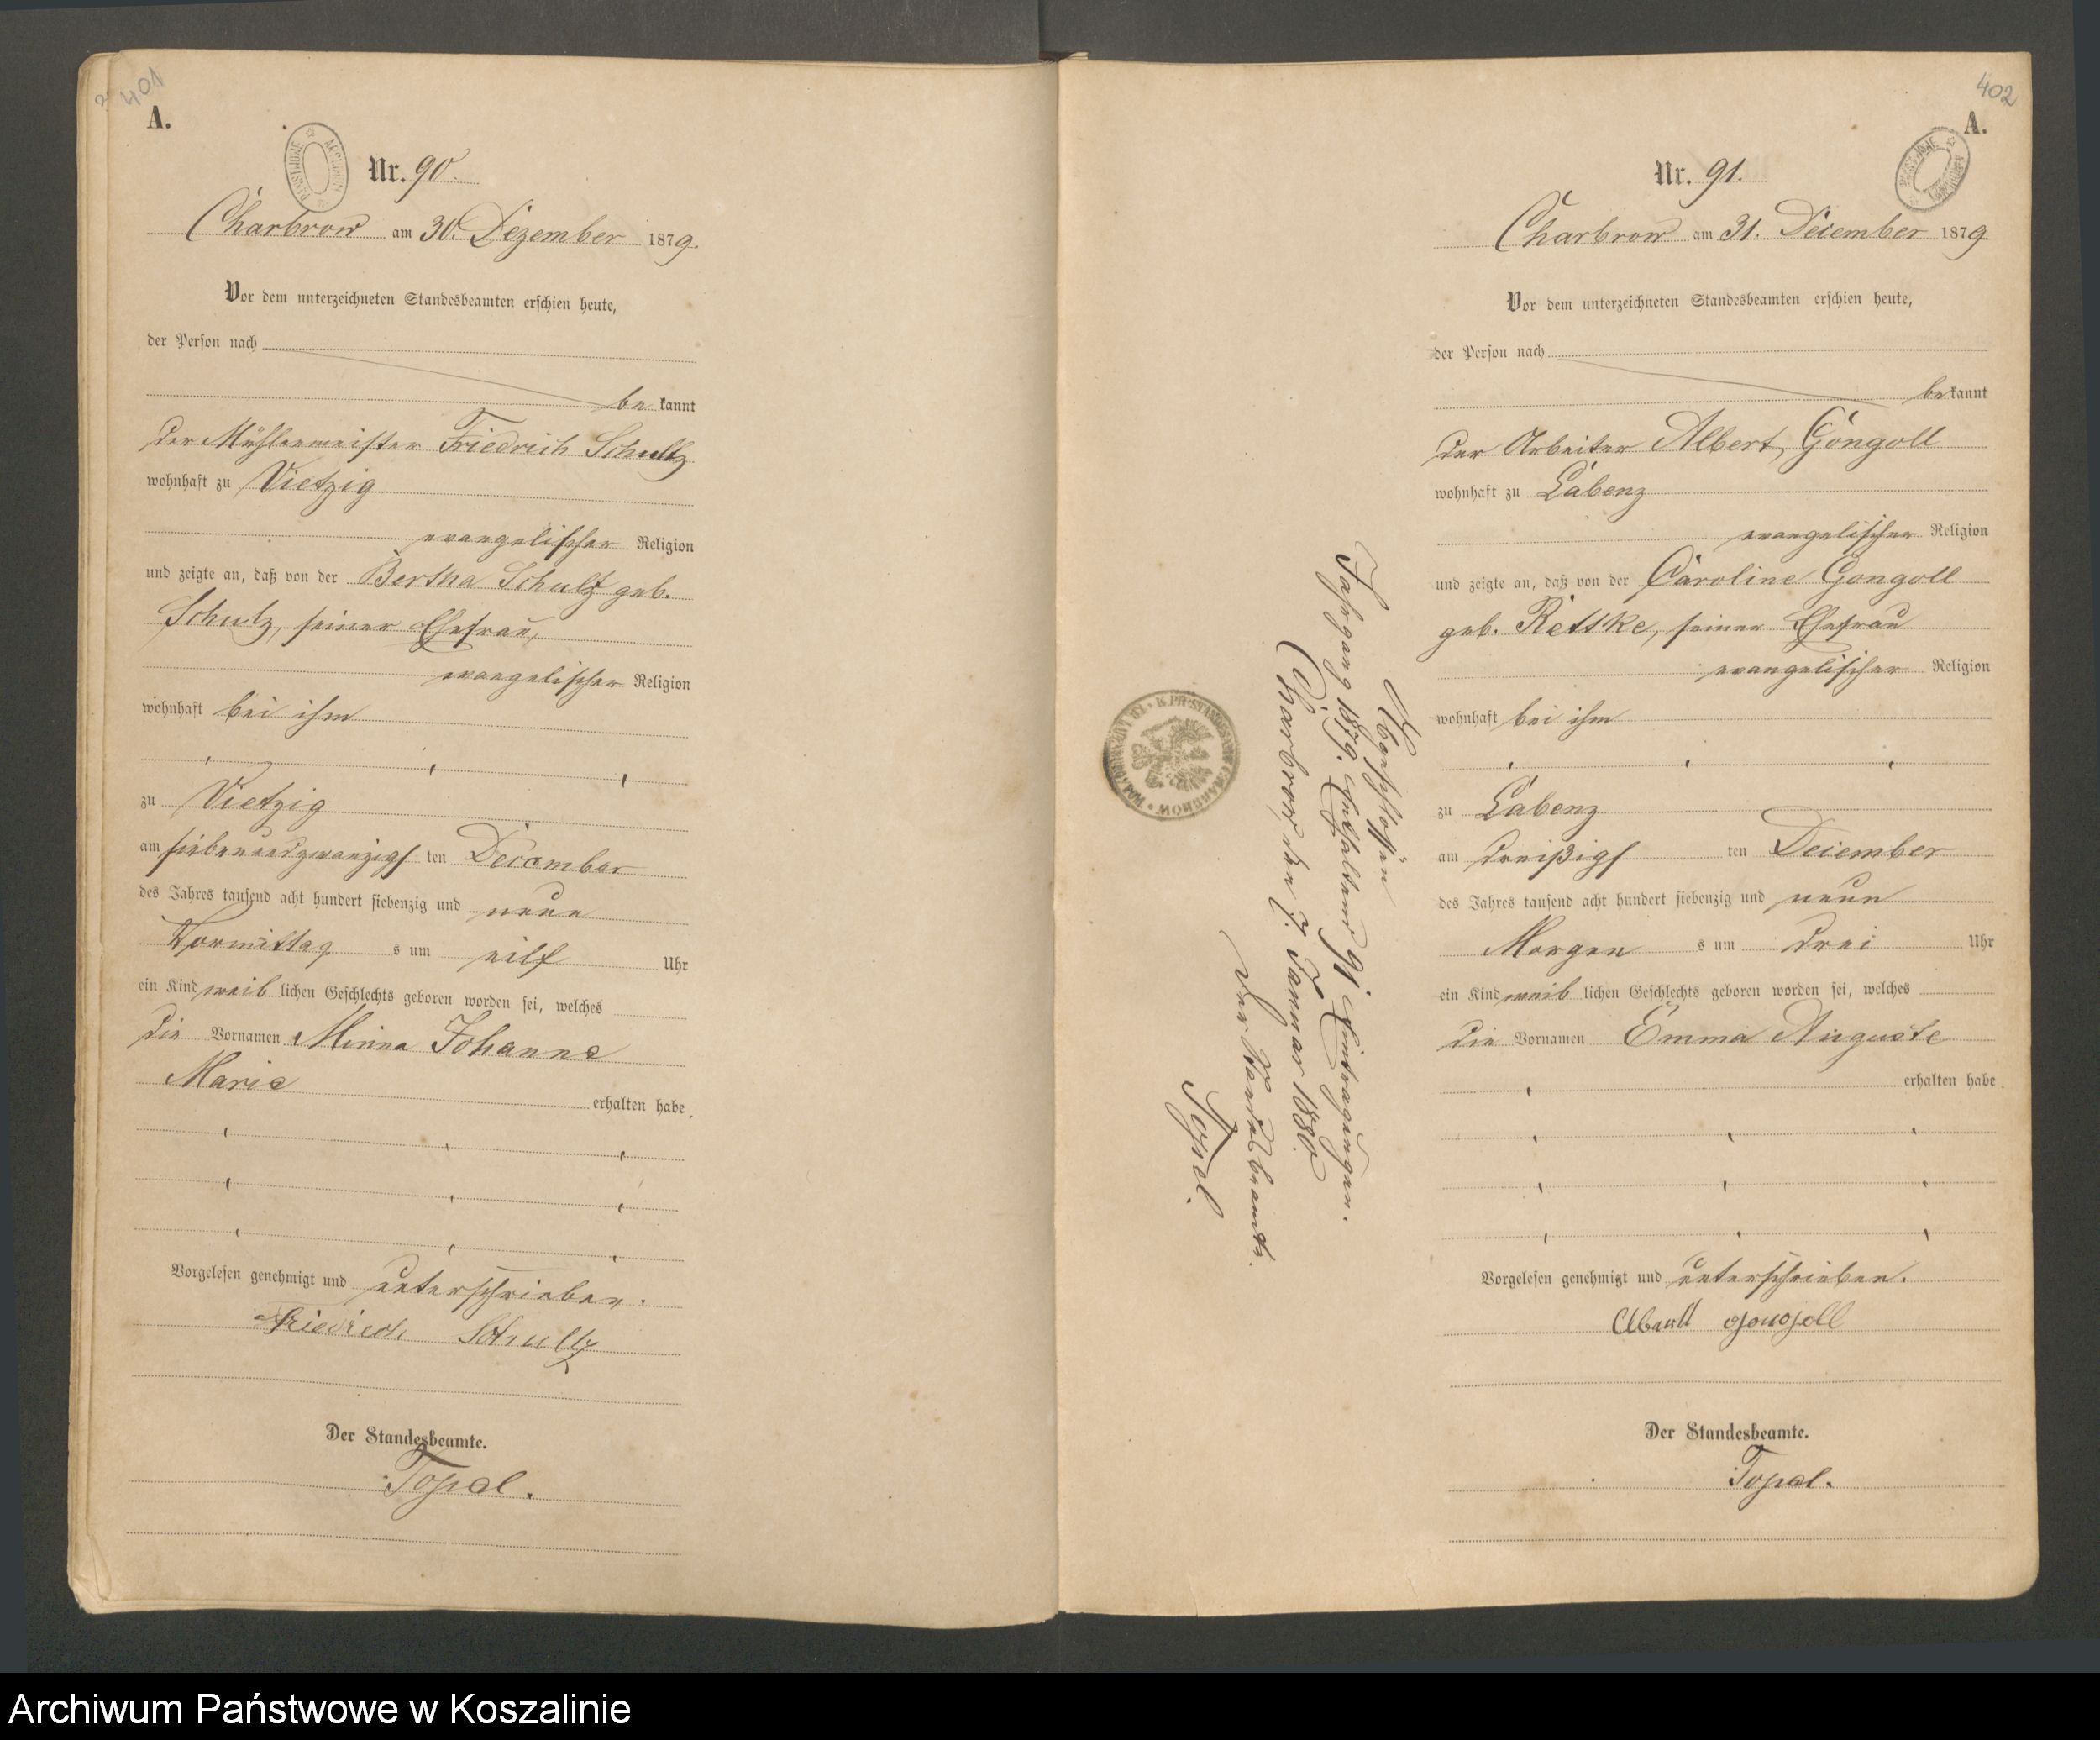 401
A.
ARCHIWUM PAŃSTWOWE
Nr. 90.
Charbrow am 30. Dezember 1879.
Vor dem unterzeichneten Standesbeamten erschien heute,
der Person nach
be kannt
der Mühlenmeister Friedrich Schultz
wohnhaft zu Vietzig
evangelischer Religion
und zeigte an, daß von der Bertha Schultz geb.
Schulz, seiner Ehefrau,
evangelischer Religion
wohnhaft bei ihm
zu Vietzig
am siebenundzwanzigs ten December
des Jahres tausend acht hundert siebenzig und neun
Vormittag s um eilf Uhr
ein Kind weib lichen Geschlechts geboren worden sei, welches
die Vornamen Minna Johanne
Marie
erhalten habe.
Vorgelesen genehmigt und unterschrieben.
Friedrich Schultz
Der Standesbeamte.
Topel.
402
A.
Nr. 91.
Charbrow am 31. December 1879
Vor dem unterzeichneten Standesbeamten erschien heute,
der Person nach
be kannt
der Arbeiter Albert Gongoll
wohnhaft zu Labenz
evangelischer Religion
und zeigte an, daß von der Caroline Gongoll
geb. Retske, seiner Ehefrau
evangelischer Religion
wohnhaft bei ihm
zu Labenz
am dreißigs ten December
des Jahres tausend acht hundert siebenzig und neun
Morgen s um drei Uhr
ein Kind weib lichen Geschlechts geboren worden sei, welches
die Vornamen Emma Auguste
erhalten habe.
Vorgelesen genehmigt und unterschrieben.
Albertt Gongoll
Der Standesbeamte.
Topel.
Abgeschlossen
Jahrgang 1879. enthaltend 91 Eintragungen.
Charbrow den 7. Januar 1880
Der Standesbeamte.
Topel.
Archiwum Państwowe w Koszalinie